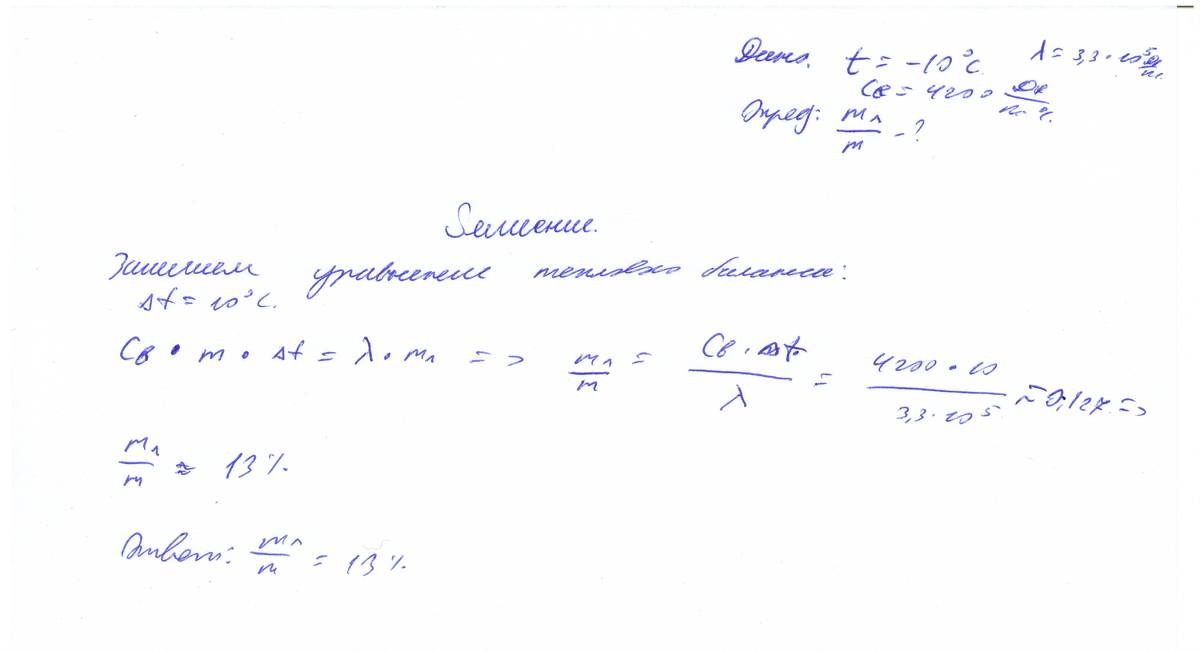 Дано. t = -10°C. λ = 3,3·10⁵ Дж/кг.
Cв = 4200 Дж/кг·°C.
Опред: mл/m - ?
Решение.
Запишем уравнение теплового баланса:
Δt = 10°C.
Cв · m · Δt = λ · mл => mл/m = Cв · Δt/λ = 4200 · 10/3,3·10⁵ ≈ 0,127. =>
mл/m ≈ 13%.
Ответ: mл/m = 13%.